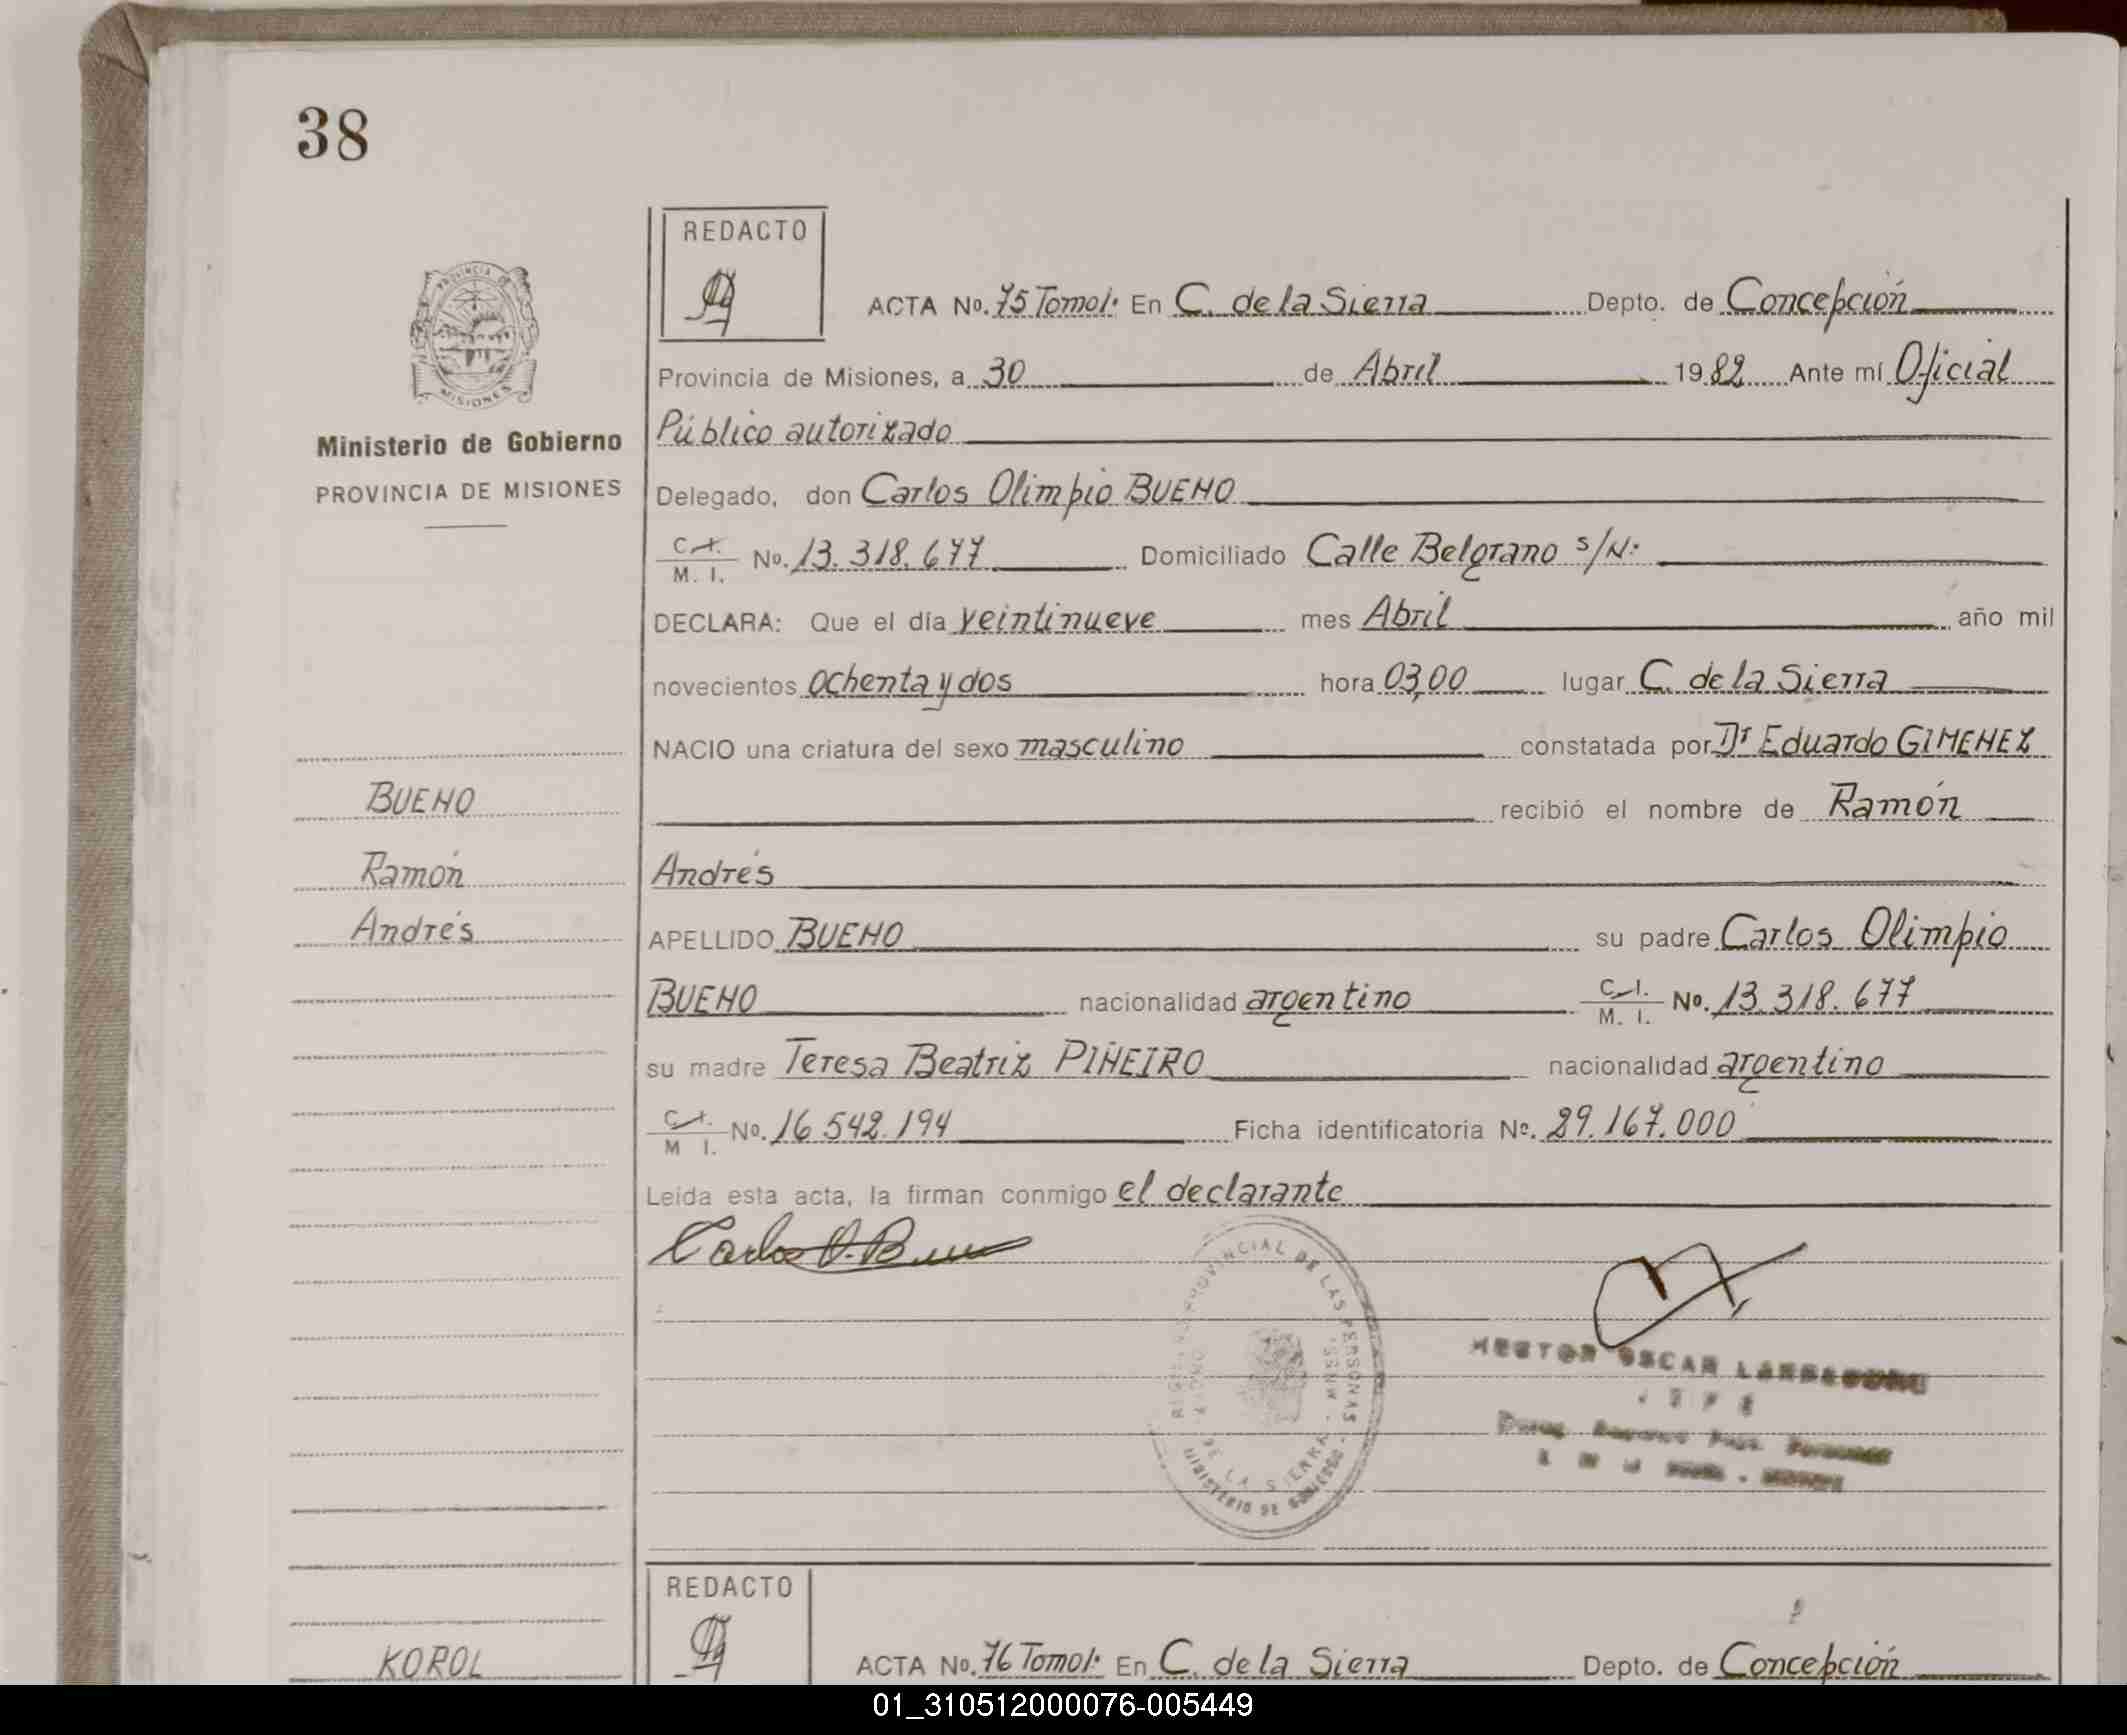 38
REDACTO
ACTA No. 75 Tomo I. En C. de la Sierra Depto. de Concepción
Provincia de Misiones, a 30 de Abril 1982 Ante mí Oficial
Público autorizado
Ministerio de Gobierno
PROVINCIA DE MISIONES
Delegado, don Carlos Olimpio BUENO
C. I.
M. I. No. 13.318.677 Domiciliado Calle Belgrano s/N:
DECLARA: Que el día veintinueve mes Abril año mil
novecientos ochenta y dos hora 03,00 lugar C. de la Sierra
NACIO una criatura del sexo masculino constatada por Dr Eduardo GIMENEZ
BUENO
recibió el nombre de Ramón
Ramón
Andrés
Andrés
APELLIDO BUENO su padre Carlos Olimpio
BUENO nacionalidad argentino C. I.
M. I. No. 13.318.677
su madre Teresa Beatriz PIÑEIRO nacionalidad argentino
C. I.
M. I. No. 16 542.194 Ficha identificatoria No. 29.167.000
Leída esta acta, la firman conmigo el declarante
Carlos O. Bueno
PROVINCIAL DE LAS PERSONAS
DE LA SIERRA
MINISTERIO DE GOBIERNO
HECTOR OSCAR
JEFE
REDACTO
KOROL
ACTA No. 76 Tomo I. En C. de la Sierra Depto. de Concepción
01_310512000076-005449